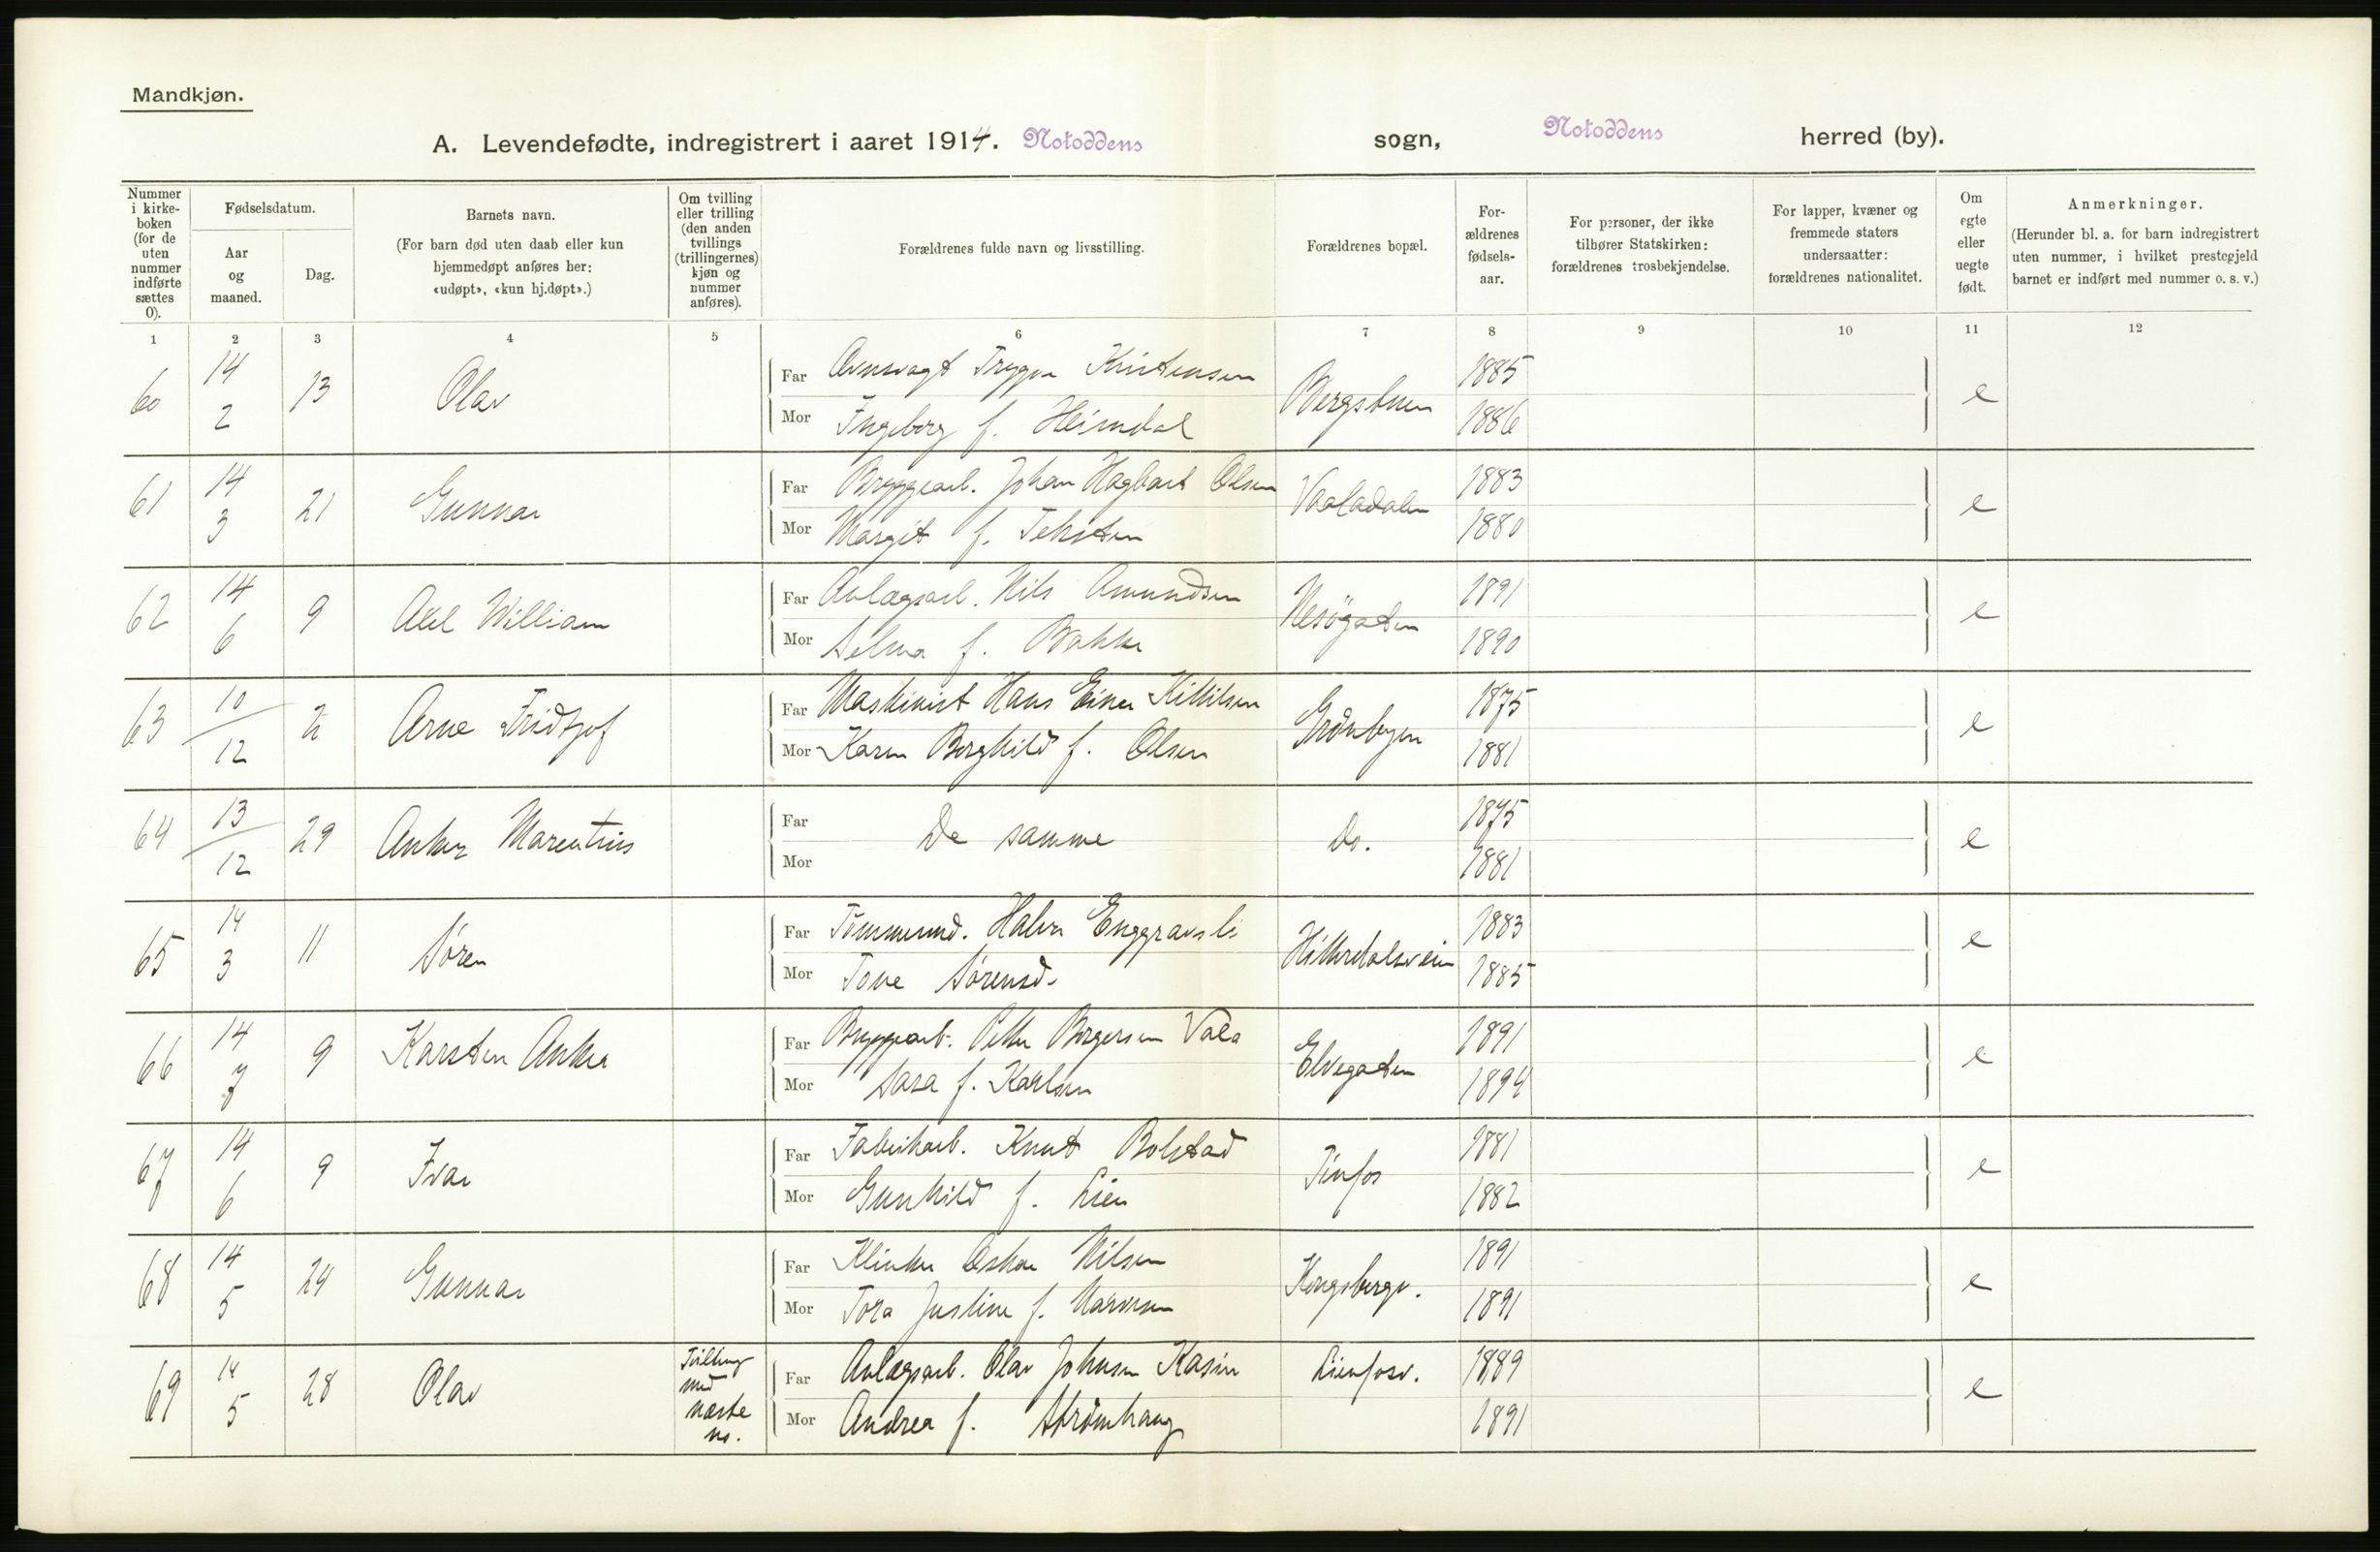 Mandkjøn.
A. Levendefødte, indregistrert i aaret 1914. Notoddens sogn, Notoddens herred (by).
Nummer i kirke-boken (for de uten nummer indførte sættes 0).
Fødselsdatum.
Aar og maaned.
Dag.
Barnets navn.
(For barn død uten daab eller kun hjemmedøpt anføres her: «udøpt», «kun hj.døpt».)
Om tvilling eller trilling (den anden tvillings (trillingernes) kjøn og nummer anføres).
Forældrenes fulde navn og livsstilling.
Forældrenes bopæl.
For-ældrenes fødsels-aar.
For personer, der ikke tilhører Statskirken: forældrenes trosbekjendelse.
For lapper, kvæner og fremmede staters undersaatter: forældrenes nationalitet.
Om egte eller uegte født.
Anmerkninger.
(Herunder bl. a. for barn indregistrert uten nummer, i hvilket prestegjeld barnet er indført med nummer o. s. v.)
1 2 3 4 5 6 7 8 9 10 11 12
60 14 2 13 Olav Far Ovnsvagt Trygve Kristensen Bergstuen 1885 e
Mor Ingeborg f. Heimdal 1886
61 14 3 21 Gunnar Far Bryggearb. Johan Hagbart Olsen Vaaladalen 1883 e
Mor Margit f. Teksten 1880
62 14 6 9 Axel William Far Anlægsarb. Nils Amundsen Nesøgaten 1891 e
Mor Selma f. Bakke 1890
63 10 12 2 Arne Fridtjof Far Maskinist Hans Einar Kittilsen Grønbyen 1875 e
Mor Karen Borghild f. Olsen 1881
64 13 12 29 Anker Marentius Far De samme Do. 1875 e
Mor 1881
65 14 3 11 Søren Far Tømmermd. Halvor Enggravsli Hitterdalsveien 1883 e
Mor Tone Sørensd. 1885
66 14 7 9 Karsten Anker Far Bryggearb. Petter Borgersen Vala Elvegaten 1891 e
Mor Sara f. Karlsen 1894
67 14 6 9 Ivar Far Fabrikarb. Knut Bolstad Tinfos 1881 e
Mor Gunhild f. Lien 1882
68 14 5 24 Gunnar Far Klinker Oskar Nilsen Kongsbergv. 1891 e
Mor Tora Justine f. 1891
69 14 5 28 Olav Tvilling med næste no. Far Anlægsarb. Olav Johnsen Kasin Lienfosv. 1889 e
Mor Andrea f. Strømhaug 1891